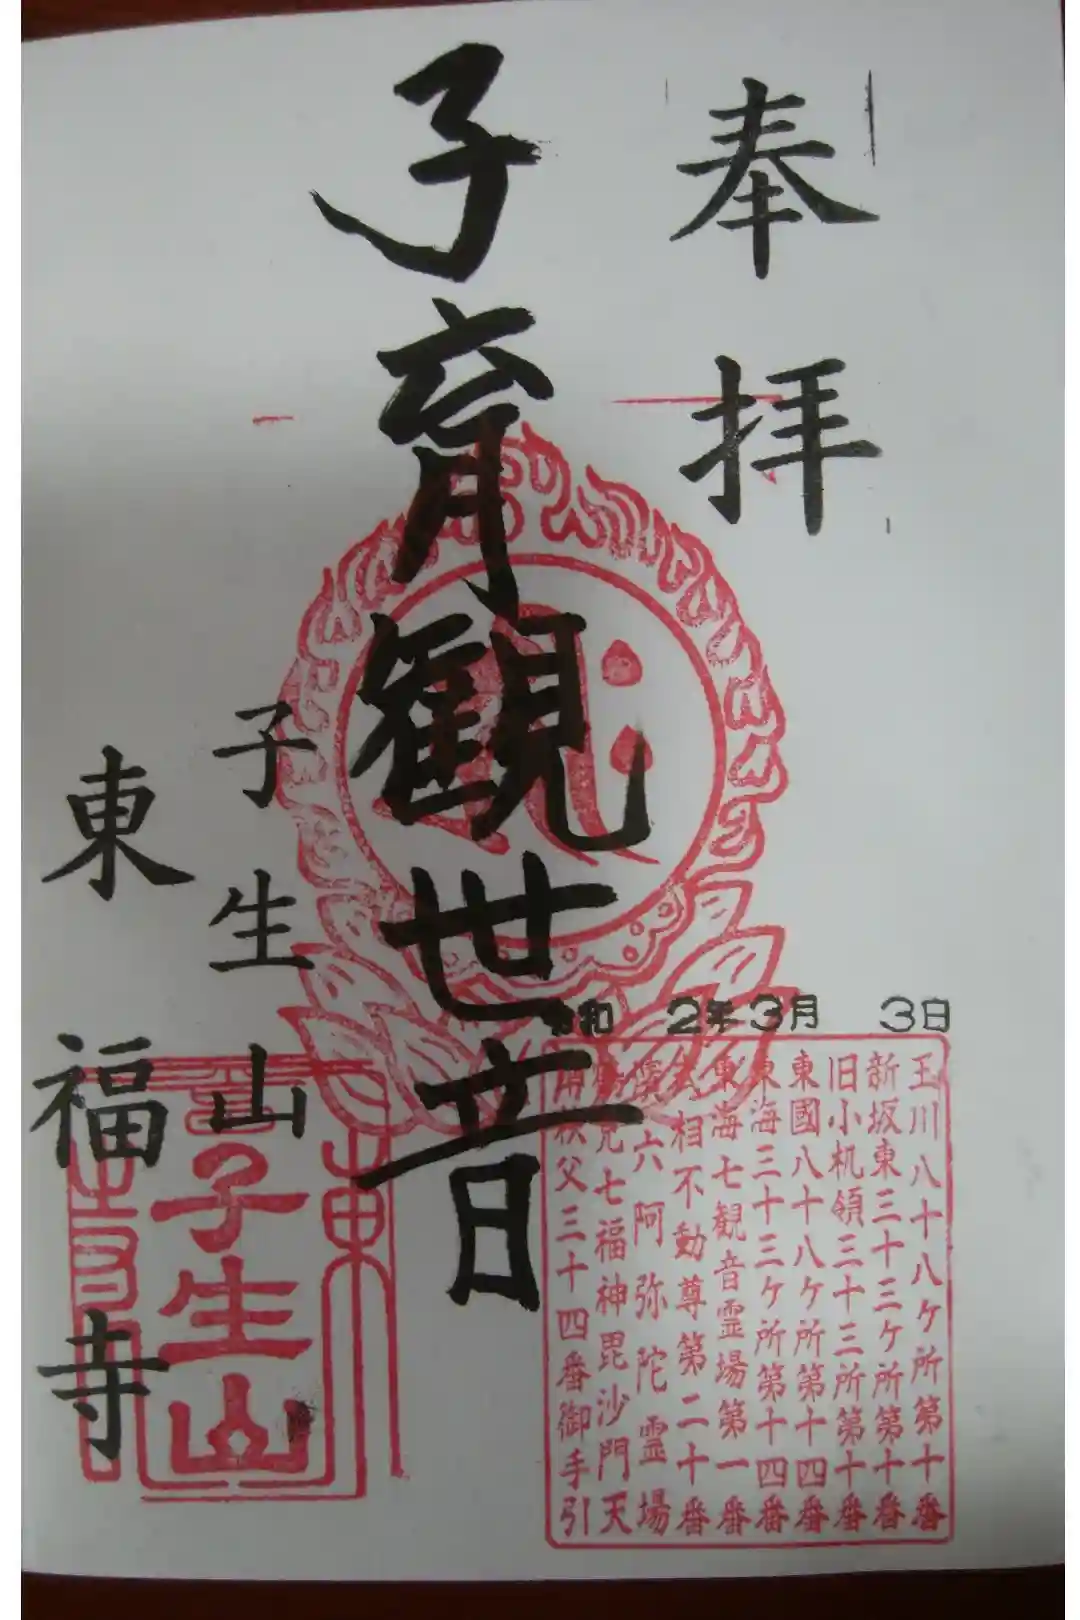 奉拝
子育観世音
子生山
東福寺
令和 2年3月 3日
玉川八十八ケ所第十番
新坂東三十三ケ所第十番
旧小机領三十三所第十番
東國八十八ケ所第十四番
東海三十三ケ所第十四番
東海七観音霊場第一番
相不動尊第二十番
六阿弥陀霊場
七福神毘沙門天
秩父三十四番御手引
子生山